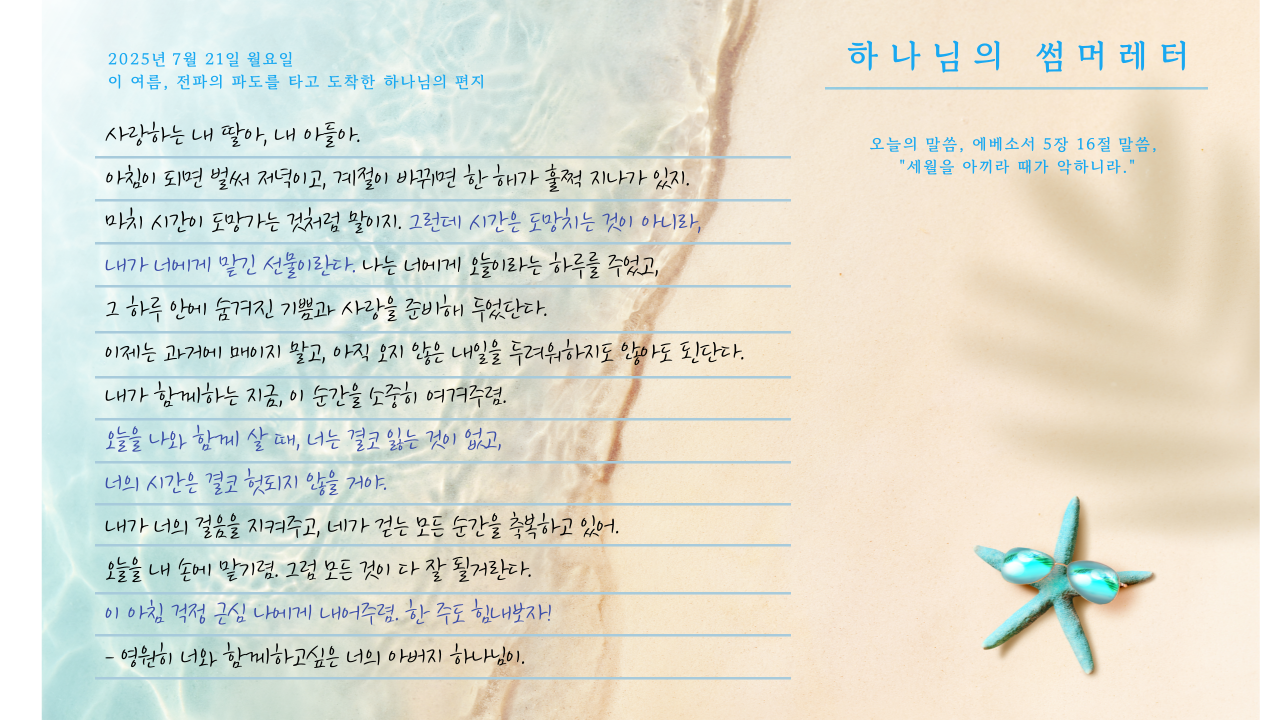 2025년 7월 21일 월요일
이 여름, 전파의 파도를 타고 도착한 하나님의 편지
사랑하는 내 딸아, 내 아들아.
아침이 되면 벌써 저녁이고, 계절이 바뀌면 한 해가 훌쩍 지나가 있지.
마치 시간이 도망가는 것처럼 말이지. 그런데 시간은 도망치는 것이 아니라,
내가 너에게 맡긴 선물이란다. 나는 너에게 오늘이라는 하루를 주었고,
그 하루 안에 숨겨진 기쁨과 사랑을 준비해 두었단다.
이제는 과거에 매이지 말고, 아직 오지 않은 내일을 두려워하지도 않아도 된단다.
내가 함께하는 지금, 이 순간을 소중히 여겨주렴.
오늘을 나와 함께 살 때, 너는 결코 잃는 것이 없고,
너의 시간은 결코 헛되지 않을 거야.
내가 너의 걸음을 지켜주고, 네가 걷는 모든 순간을 축복하고 있어.
오늘을 내 손에 맡기렴. 그럼 모든 것이 다 잘 될거란다.
이 아침 걱정 근심 나에게 내어주렴. 한 주도 힘내보자!
- 영원히 너와 함께하고싶은 너의 아버지 하나님이.
하나님의 썸머레터
오늘의 말씀, 에베소서 5장 16절 말씀,
"세월을 아끼라 때가 악하니라."